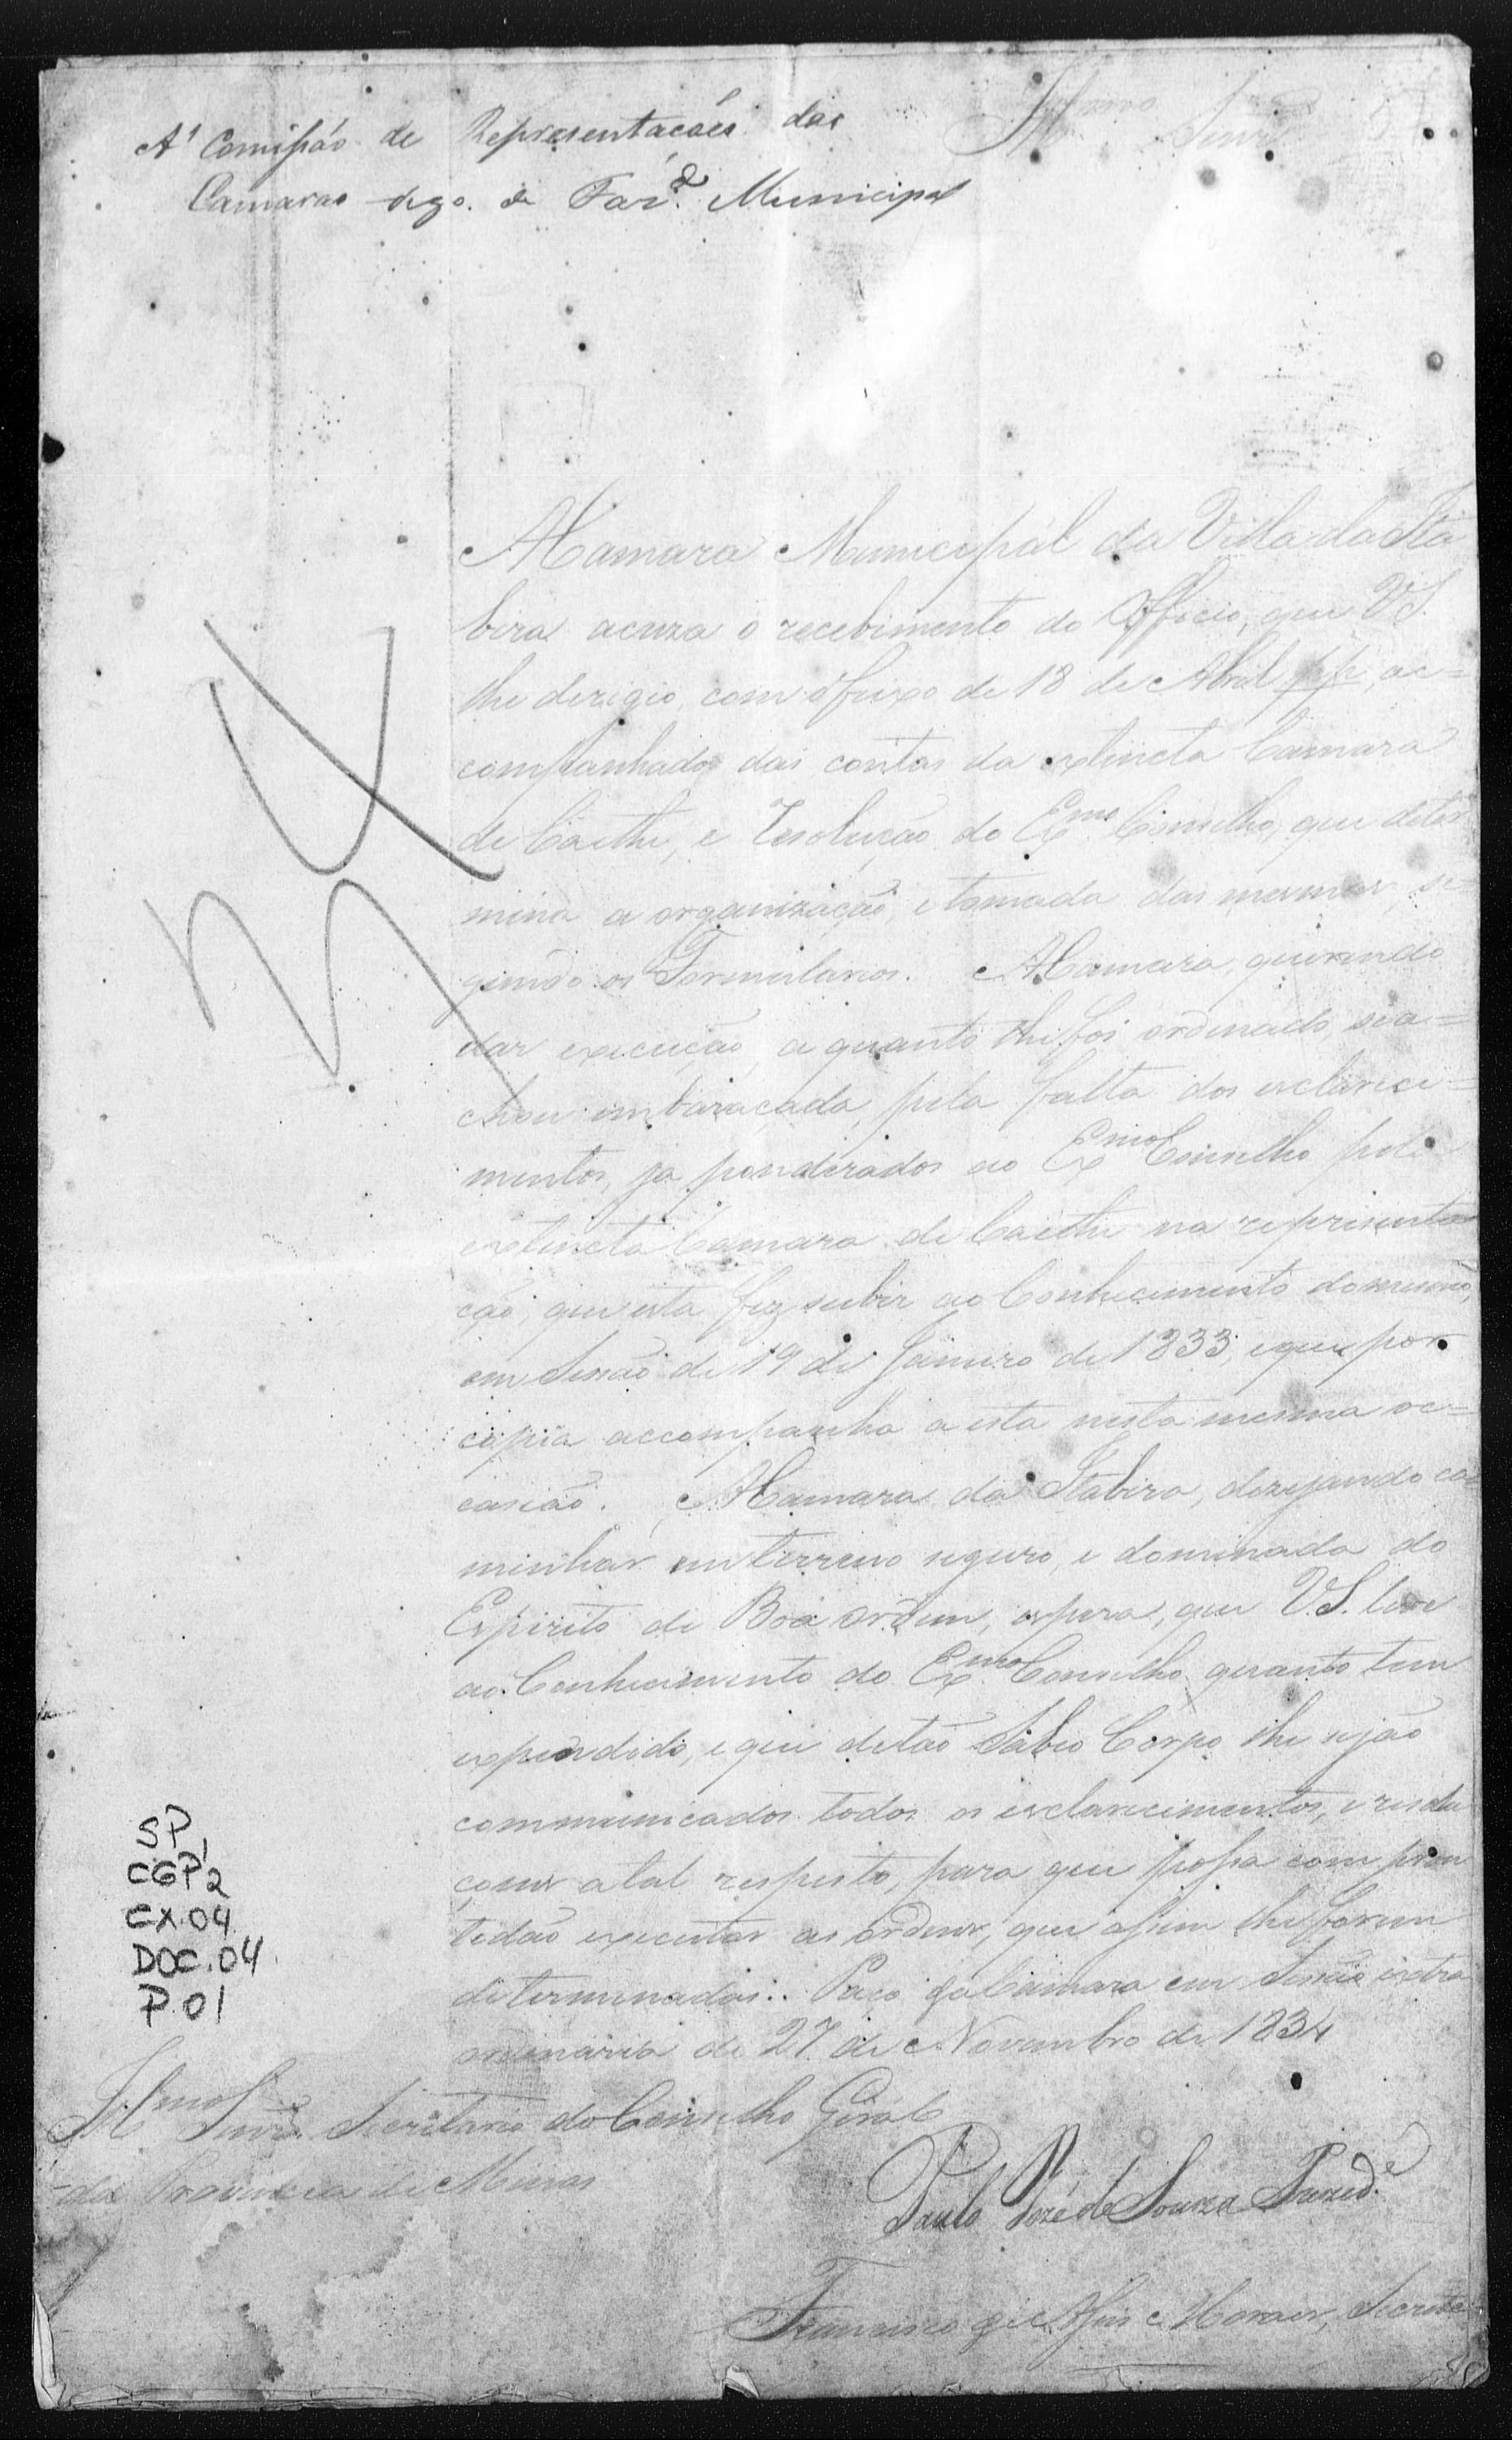 A' Comissaõ de Representacões das
Camaras digo. de Faz.da Municipal
Illmo Senr
A Camara Municipal da Villa da Ita
bira acuza o recebimento do Officio, que VS.
lhe derigio, com o feixo de 18 de Abril pp, ac=
companhado das contas da extincta Camara
de Caethe, e Resolução do Exmo Conselho, que deter
mina a organização, e tomada das mesmas, se
gundo os Formularios. A Camara, querendo
dar execução, a quanto lhe foi ordenado, sea=
chou embaraçada, pela falta dos esclareci=
mentos, ja ponderados ao Exmo Conselho pela
extincta Camara de Caethe na representa
ção, que esta fez subir ao Conhecimento domesmo,
em Sessão de 19 de Janeiro de 1833, eque por
copia accompanha a esta nesta mesma oc=
casião. A Camara da Itabira, dezejando ca=
minhar em terreno seguro, e dominada do
Espirito de Boa ordem, espera, que V.S. leve
ao Conhecimento do Exmo Conselho quanto tem
expendido, eque detão Sabio Corpo lhe sejão
communicados todos os esclarecimentos, e resolu
çoens atal respeito, para que possa com prom
tidão executar as ordens, que assim lhe forem
determinadas. Paço da Camara em Sessão extra
ordinaria de 27 de Novembro de 1834
Illmo Senr. Secretario do Conselho Geral
da Provincia de Minas
Paulo Jozé de Souza Prezid.e
Francisco de Assis e Moraes, Secreto
SP,
CGP2
CX.04
DOC.04.
P.01